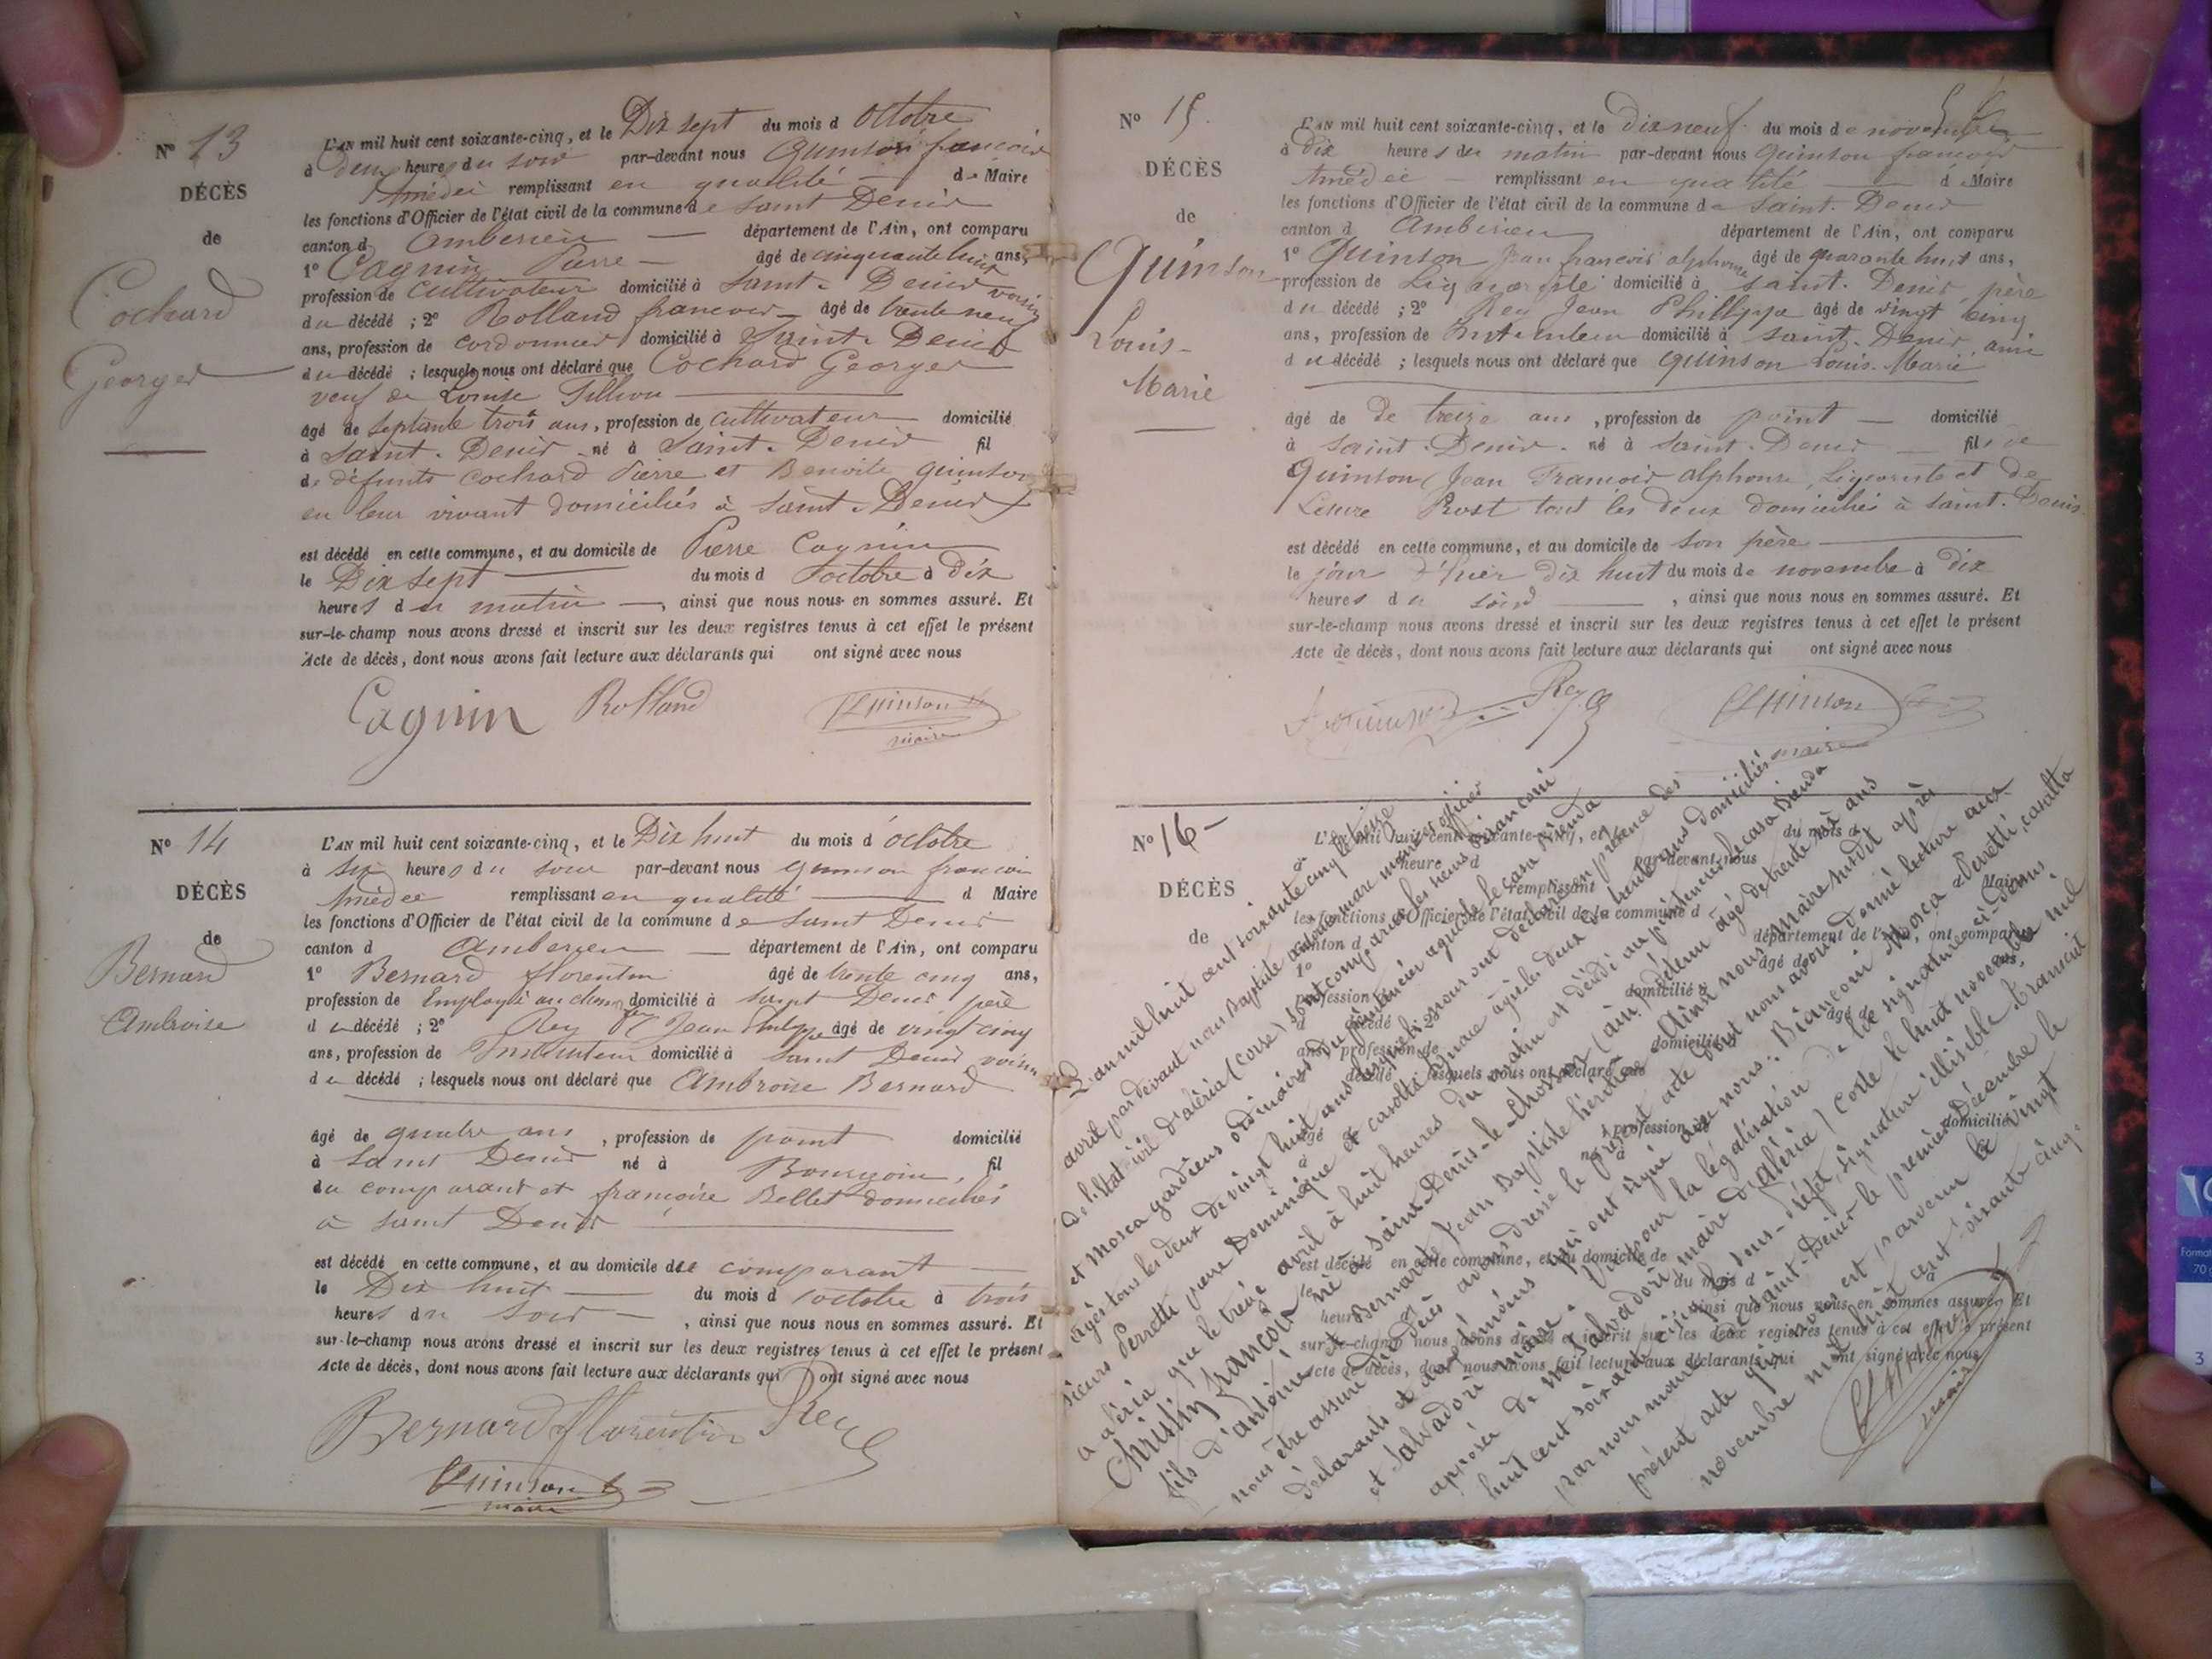 N° 13
DÉCÈS
de
Cochard
Georges
L'AN mil huit cent soixante-cinq, et le Dix sept du mois d octobre
à Deux heures du soir par-devant nous Quinson françois
Amédée remplissant en qualité de Maire
les fonctions d'Officier de l'état civil de la commune de Saint Denis
canton d Amberieu département de l'Ain, ont comparu
1° Cagnin Pierre âgé de cinquante huit ans,
profession de cultivateur domicilié à Saint-Denis voisin
du décédé ; 2° Rolland françois âgé de trente neuf
ans, profession de cordonnier domicilié à Saint-Denis
du décédé ; lesquels nous ont déclaré que Cochard Georges
veuf de Louise Tillion
âgé de septante trois ans, profession de cultivateur domicilié
à Saint-Denis né à Saint-Denis fil
de défunts Cochard Pierre et Benoite Quinson
en leur vivant domiciliés à Saint-Denis
est décédé en cette commune, et au domicile de Pierre Cagnin
le Dix sept du mois d octobre à dix
heures du matin, ainsi que nous nous en sommes assuré. Et
sur-le-champ nous avons dressé et inscrit sur les deux registres tenus à cet effet le présent
Acte de décès, dont nous avons fait lecture aux déclarants qui ont signé avec nous
Cagnin Rolland Quinson
maire
N° 14
DÉCÈS
de
Bernard
Ambroise
L'AN mil huit cent soixante-cinq, et le Dix huit du mois d'octobre
à six heures du soir par-devant nous Quinson françois
Amédée remplissant en qualité d Maire
les fonctions d'Officier de l'état civil de la commune de Saint Denis
canton d Amberieu département de l'Ain, ont comparu
1° Bernard florentin âgé de trente cinq ans,
profession de Employé au chemin domicilié à Saint Denis père
du décédé ; 2° Rey Jean Philippe âgé de vingt-cinq
ans, profession de Instituteur domicilié à Saint Denis voisin
du décédé ; lesquels nous ont déclaré que Ambroise Bernard
âgé de quatre ans, profession de point domicilié
à Saint Denis né à Bourgoin, fil
du comparant et françoise Bellet domiciliés
à Saint Denis
est décédé en cette commune, et au domicile de comparant
le Dix huit du mois d octobre à trois
heures du soir, ainsi que nous nous en sommes assuré. Et
sur-le-champ nous avons dressé et inscrit sur les deux registres tenus à cet effet le présent
Acte de décès, dont nous avons fait lecture aux déclarants qui ont signé avec nous
Bernard florentin Rey
Quinson
maire
N° 15.
DÉCÈS
de
Quinson
Louis-
Marie
L'AN mil huit cent soixante-cinq, et le dix neuf du mois de novembre
à dix heures du matin par-devant nous Quinson françois
Amédée remplissant en qualité d Maire
les fonctions d'Officier de l'état civil de la commune de Saint-Denis
canton d Ambérieu département de l'Ain, ont comparu
1° Quinson Jean françois alphonse âgé de quarante huit ans,
profession de Liquoriste domicilié à saint-Denis, père
du décédé ; 2° Rey Jean Philippe âgé de vingt cinq
ans, profession de Instituteur domicilié à saint-Denis, ami
du décédé ; lesquels nous ont déclaré que Quinson Louis-Marie
âgé de De treize ans, profession de point domicilié
à saint-Denis. né à Saint-Denis fils de
Quinson Jean François alphonse, Liquoriste et de
Rost tout les deux domiciliés à saint-Denis
est décédé en cette commune, et au domicile de son père
le jour d'hier dix huit du mois de novembre à dix
heures du soir, ainsi que nous nous en sommes assuré. Et
sur-le-champ nous avons dressé et inscrit sur les deux registres tenus à cet effet le présent
Acte de décès, dont nous avons fait lecture aux déclarants qui ont signé avec nous
Rey Quinson
maire
N° 16
DÉCÈS
de
L'an mil huit cent soixante cinq le treize
avril par devant nous Baptiste maire officier
de l'état civil d'aléria (corse) sont comparus les sieurs Bianconi
et Mosca gardiens ordinaires du pénitencier agricole de casa Bianda
âgés tous les deux de vingt huit ans lesquels nous ont déclaré en présence des
sieurs Perretti Dominique et casalta âgés les deux de trente ans domiciliés
à aléria que le treize avril à huit heures du matin est décédé au pénitencier de casa Bianda
Christin françois né à saint-Denis-le-Chosson (ain) détenu âgé de trente six ans
fils d'antoine et Bernarde Jean Baptiste Ainsi nous Maire susdit après
nous être assuré du décès avons dressé le présent acte dont nous avons donné lecture aux
déclarants et aux témoins qui ont signé avec nous: Bianconi Mosca Perretti, casalta
et Salvadori maire. Vu pour la légalisation de la signature ci-dessus,
apposée de Mr Salvadori, maire d'aléria / corte le huit novembre mil
huit cent soixante cinq le sous-préfet, signature illisible transcrit
par nous maire de saint-Denis le premier décembre le
présent acte qui nous est parvenu le vingt
novembre mil huit cent soixante cinq.
Quinson
maire
L'AN mil huit cent soixante-cinq, et le du mois d
heure d par-devant nous
remplissant Maire
les fonctions d'Officier de l'état civil de la commune d
canton d département de l'Ain, ont comparu
1° âgé de ans,
profession de domicilié à
d décédé ; 2° âgé de
ans, profession de domicilié à
d décédé ; lesquels nous ont déclaré que
âgé profession de domicilié
à né à
est décédé en cette commune, et au domicile de
le du mois d à
heure ainsi que nous nous en sommes assuré. Et
sur-le-champ nous avons dressé et inscrit sur les deux registres tenus à cet effet le présent
Acte de décès, dont nous avons fait lecture aux déclarants qui ont signé avec nous